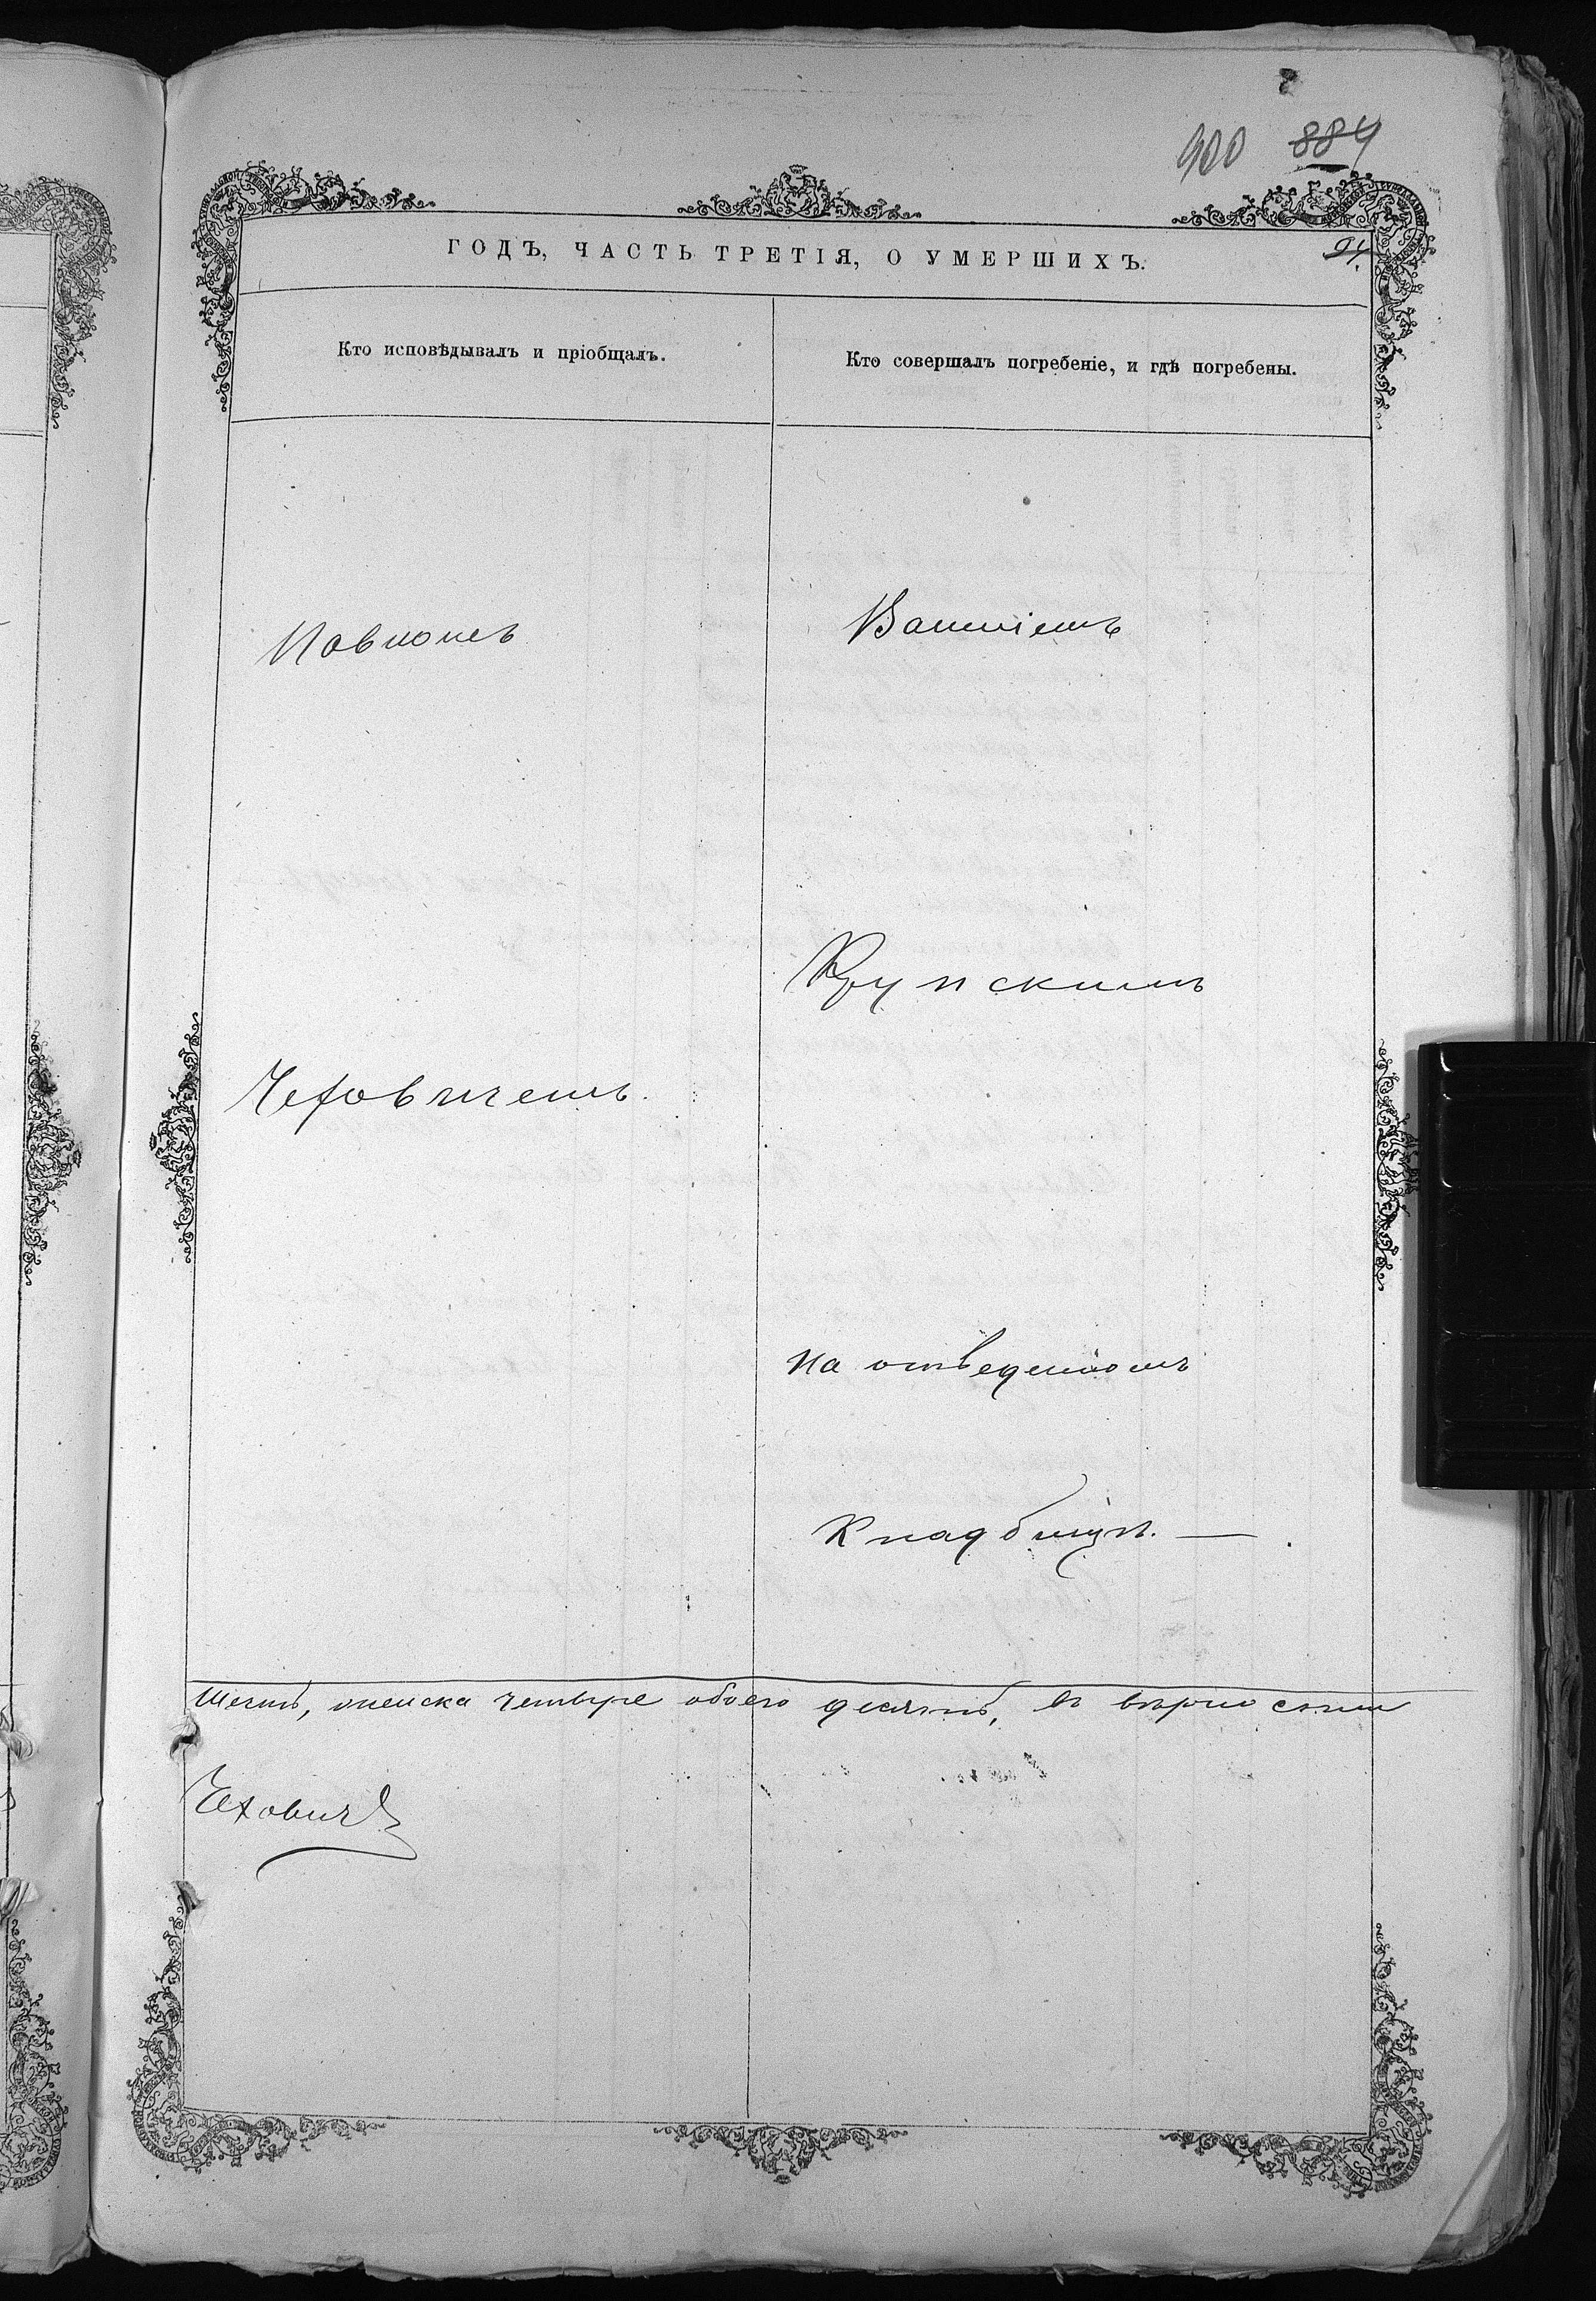 900 884
ГОДЪ, ЧАСТЬ ТРЕТІЯ, О УМЕРШИХЪ.
Кто исповѣдывалъ и пріобщалъ.
Кто совершалъ погребеніе, и гдѣ погребены.
Крупскимъ
Чеховичемъ.
на отведенномъ
Кладбищѣ. —
Шесть, женска четыре обоего десять, въ вѣрности
Чеховичъ